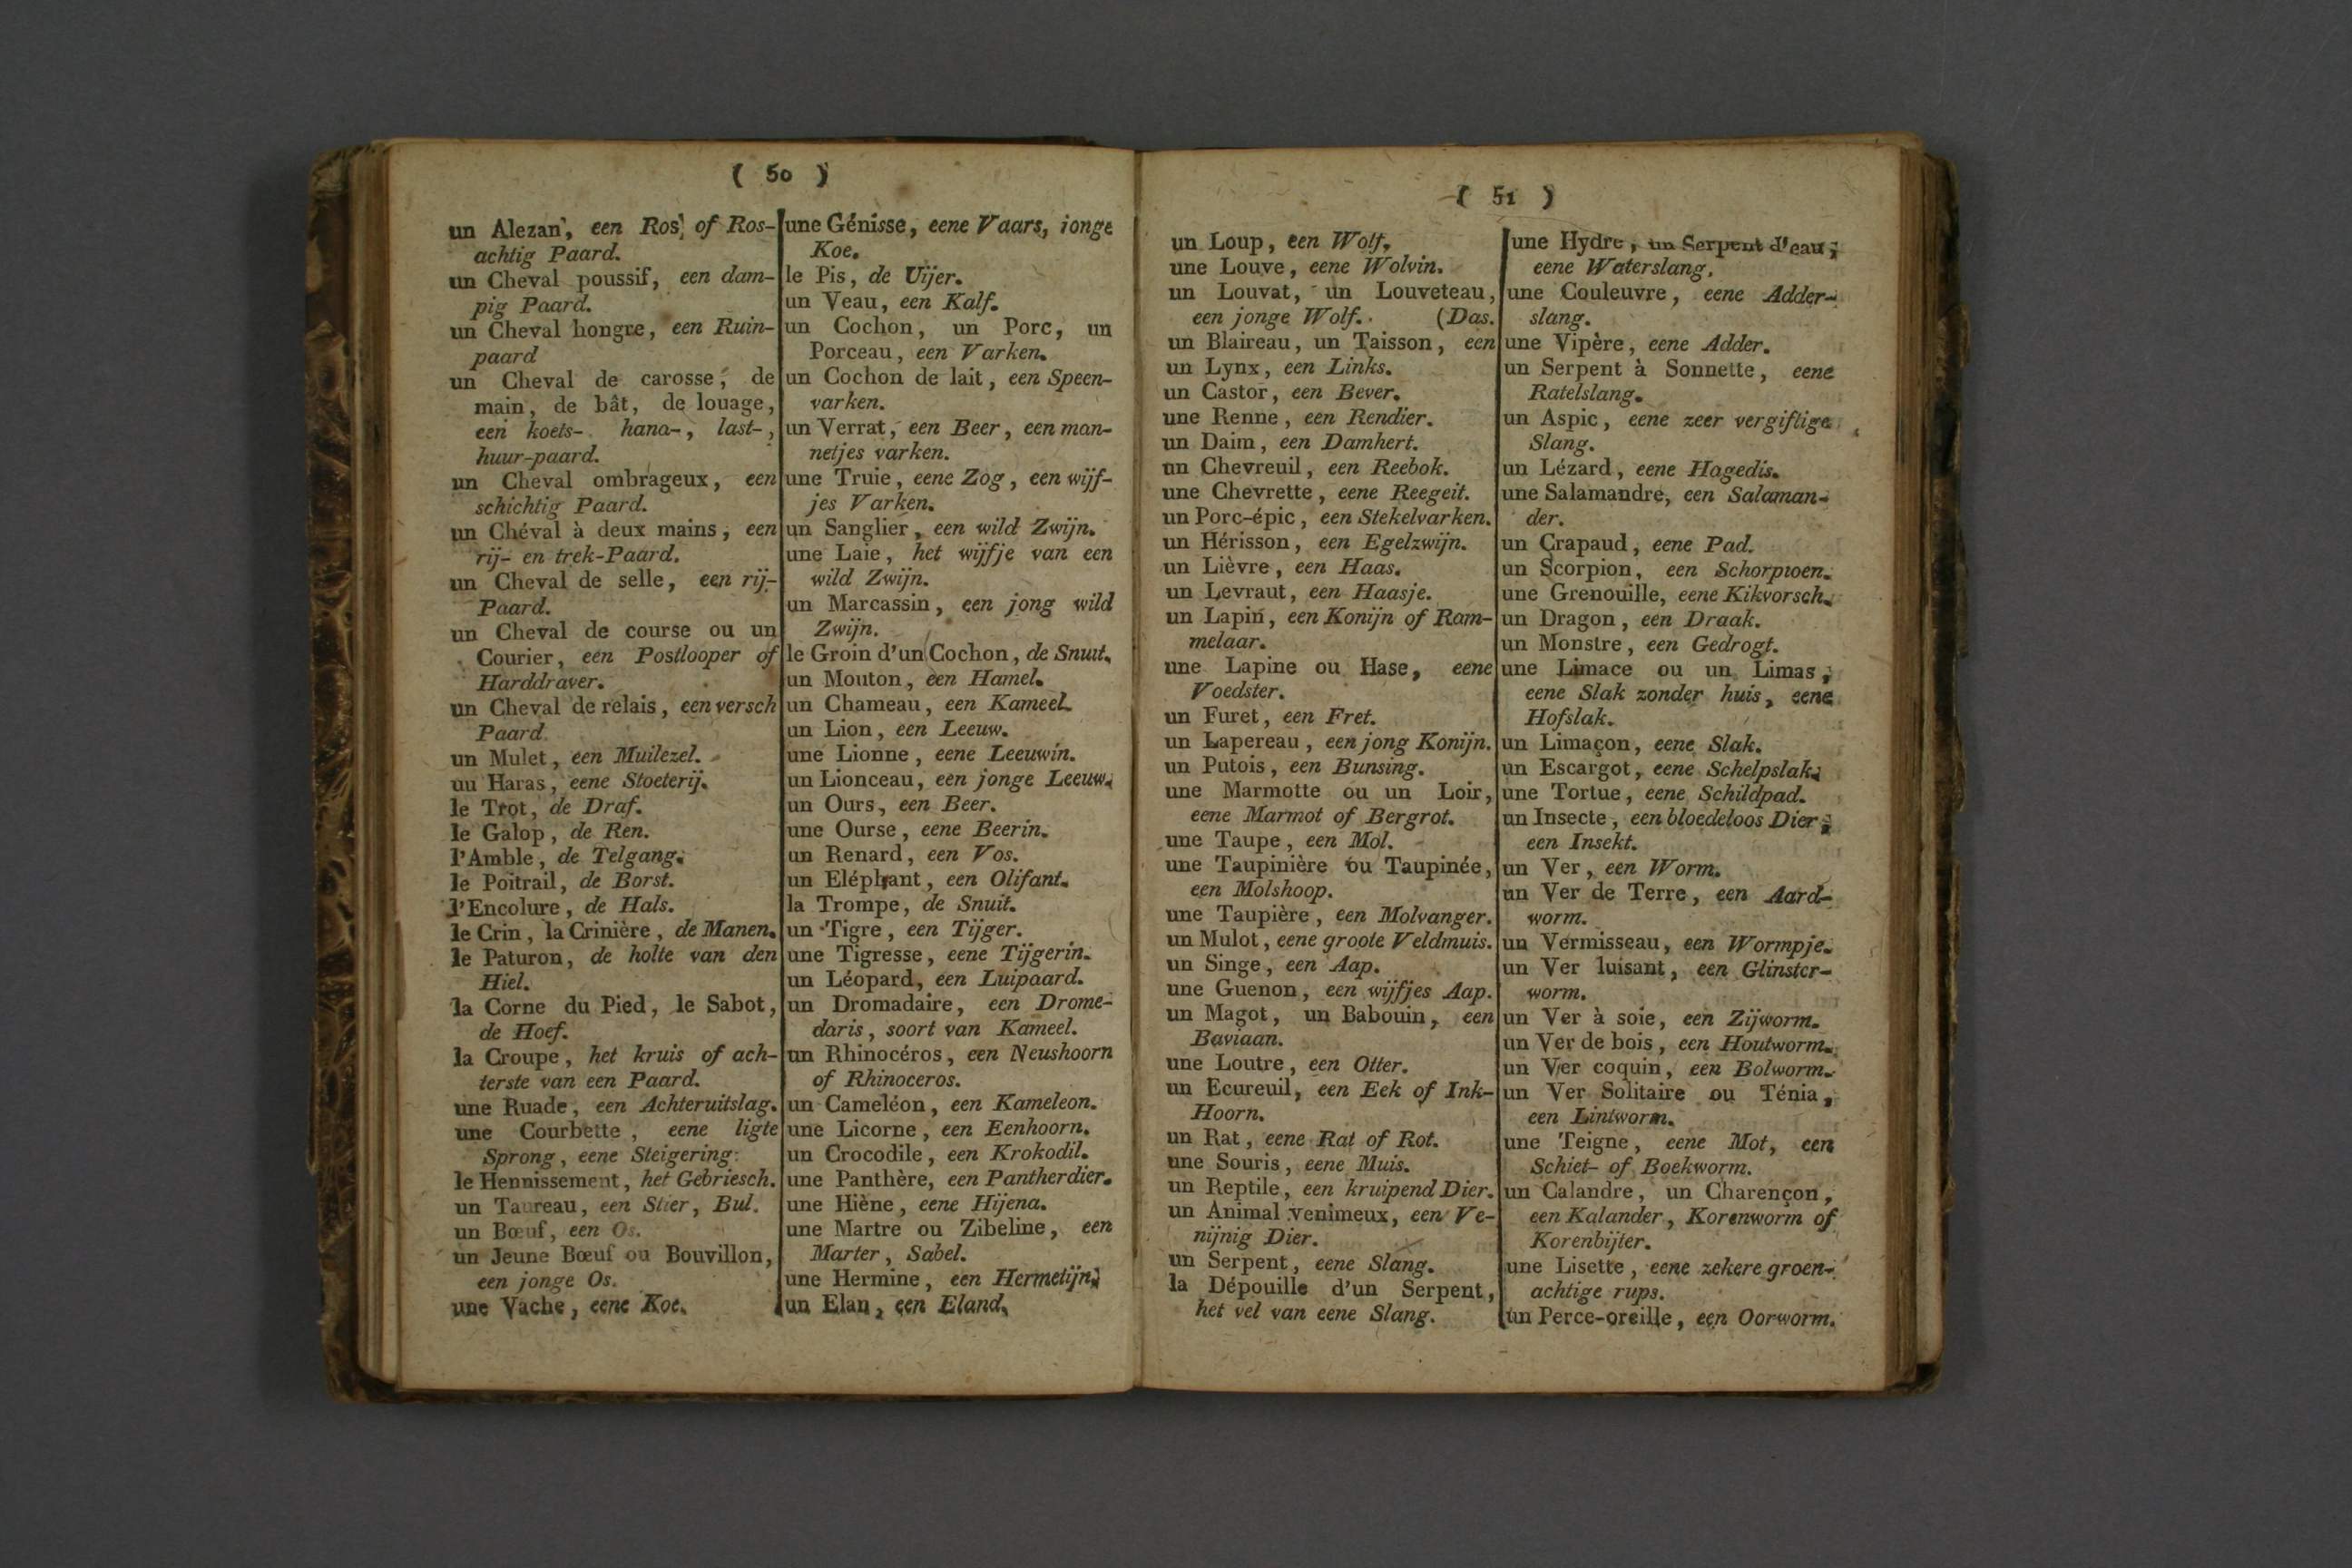 ( 50 )
un Alezan, een Ros, of Ros-
achtig Paard.
un Cheval poussif, een dam-
pig Paard.
un Cheval hongre, een Ruin-
paard
un Cheval de carosse, de
main, de bât, de louage,
een koets- hana-, last-,
huur-paard.
un Cheval ombrageux, een
schichtig Paard.
un Chéval à deux mains, een
rij- en trek-Paard.
un Cheval de selle, een rij-
Paard.
un Cheval de course ou un
Courier, een Postlooper of
Harddraver.
un Cheval de relais, een versch
Paard.
un Mulet, een Muilezel.
uu Haras, eene Stoeterij.
le Trot, de Draf.
le Galop, de Ren.
l'Amble, de Telgang.
le Poitrail, de Borst.
l'Encolure, de Hals.
le Crin, la Crinière, de Manen.
le Paturon, de holte van den
Hiel.
la Corne du Pied, le Sabot,
de Hoef.
la Croupe, het kruis of ach-
terste van een Paard.
une Ruade, een Achteruitslag.
une Courbette, eene ligte
Sprong, eene Steigering.
le Hennissement, het Gebriesch.
un Taureau, een Stier, Bul.
un Bœuf, een Os.
un Jeune Bœuf ou Bouvillon,
een jonge Os.
une Vache, eene Koe.
une Génisse, eene Vaars, jonge
Koe.
le Pis, de Uijer.
un Veau, een Kalf.
un Cochon, un Porc, un
Porceau, een Varken.
un Cochon de lait, een Speen-
varken.
un Verrat, een Beer, een man-
netjes varken.
une Truie, eene Zog, een wijf-
jes Varken.
un Sanglier, een wild Zwijn.
une Laie, het wijfje van een
wild Zwijn.
un Marcassin, een jong wild
Zwijn.
le Groin d'un Cochon, de Snuit.
un Mouton, een Hamel.
un Chameau, een Kameel.
un Lion, een Leeuw.
une Lionne, eene Leeuwin.
un Lionceau, een jonge Leeuw.
un Ours, een Beer.
une Ourse, eene Beerin.
un Renard, een Vos.
un Eléphant, een Olifant.
la Trompe, de Snuit.
un Tigre, een Tijger.
une Tigresse, eene Tijgerin.
un Léopard, een Luipaard.
un Dromadaire, een Drome-
daris, soort van Kameel.
un Rhinocéros, een Neushoorn
of Rhinoceros.
un Cameléon, een Kameleon.
une Licorne, een Eenhoorn.
un Crocodile, een Krokodil.
une Panthère, een Pantherdier.
une Hiène, eene Hijena.
une Martre ou Zibeline, een
Marter, Sabel.
une Hermine, een Hermelijn.
un Elan, een Eland.
( 51 )
un Loup, een Wolf.
une Louve, eene Wolvin.
un Louvat, un Louveteau,
een jonge Wolf. (Das.
un Blaireau, un Taisson, een
un Lynx, een Links.
un Castor, een Bever.
une Renne, een Rendier.
un Daim, een Damhert.
un Chevreuil, een Reebok.
une Chevrette, eene Reegeit.
un Porc-épic, een Stekelvarken.
un Hérisson, een Egelzwijn.
un Lièvre, een Haas.
un Levraut, een Haasje.
un Lapin, een Konijn of Ram-
melaar.
une Lapine ou Hase, eene
Voedster.
un Furet, een Fret.
un Lapereau, een jong Konijn.
un Putois, een Bunsing.
une Marmotte ou un Loir,
eene Marmot of Bergrot.
une Taupe, een Mol.
une Taupinière ou Taupinée,
een Molshoop.
une Taupière, een Molvanger.
un Mulot, eene groote Veldmuis.
un Singe, een Aap.
une Guenon, een wijfjes Aap.
un Magot, un Babouin, een
Baviaan.
une Loutre, een Otter.
un Ecureuil, een Eek of Ink-
Hoorn.
un Rat, eene Rat of Rot.
une Souris, eene Muis.
un Reptile, een kruipend Dier.
un Animal venimeux, een Ve-
nijnig Dier.
un Serpent, eene Slang.
la Dépouille d'un Serpent,
het vel van eene Slang.
une Hydre, un Serpent d'eau,
eene Waterslang.
une Couleuvre, eene Adder-
slang.
une Vipère, eene Adder.
un Serpent à Sonnette, eene
Ratelslang.
un Aspic, eene zeer vergiftige
Slang.
un Lézard, eene Hagedis.
une Salamandre, een Salaman-
der.
un Crapaud, eene Pad.
un Scorpion, een Schorpioen.
une Grenouille, eene Kikvorsch.
un Dragon, een Draak.
un Monstre, een Gedrogt.
une Limace ou un Limas,
eene Slak zonder huis, eene
Hofslak.
un Limaçon, eene Slak.
un Escargot, eene Schelpslak.
une Tortue, eene Schildpad.
un Insecte, een bloedeloos Dier,
een Insekt.
un Ver, een Worm.
un Ver de Terre, een Aard-
worm.
un Vermisseau, een Wormpje.
un Ver luisant, een Glinster-
worm.
un Ver à soie, een Zijworm.
un Ver de bois, een Houtworm.
un Ver coquin, een Bolworm.
un Ver Solitaire ou Ténia,
een Lintworm.
une Teigne, eene Mot, een
Schiet- of Boekworm.
un Calandre, un Charençon,
een Kalander, Korenworm of
Korenbijter.
une Lisette, eene zekere groen-
achtige rups.
un Perce-oreille, een Oorworm.